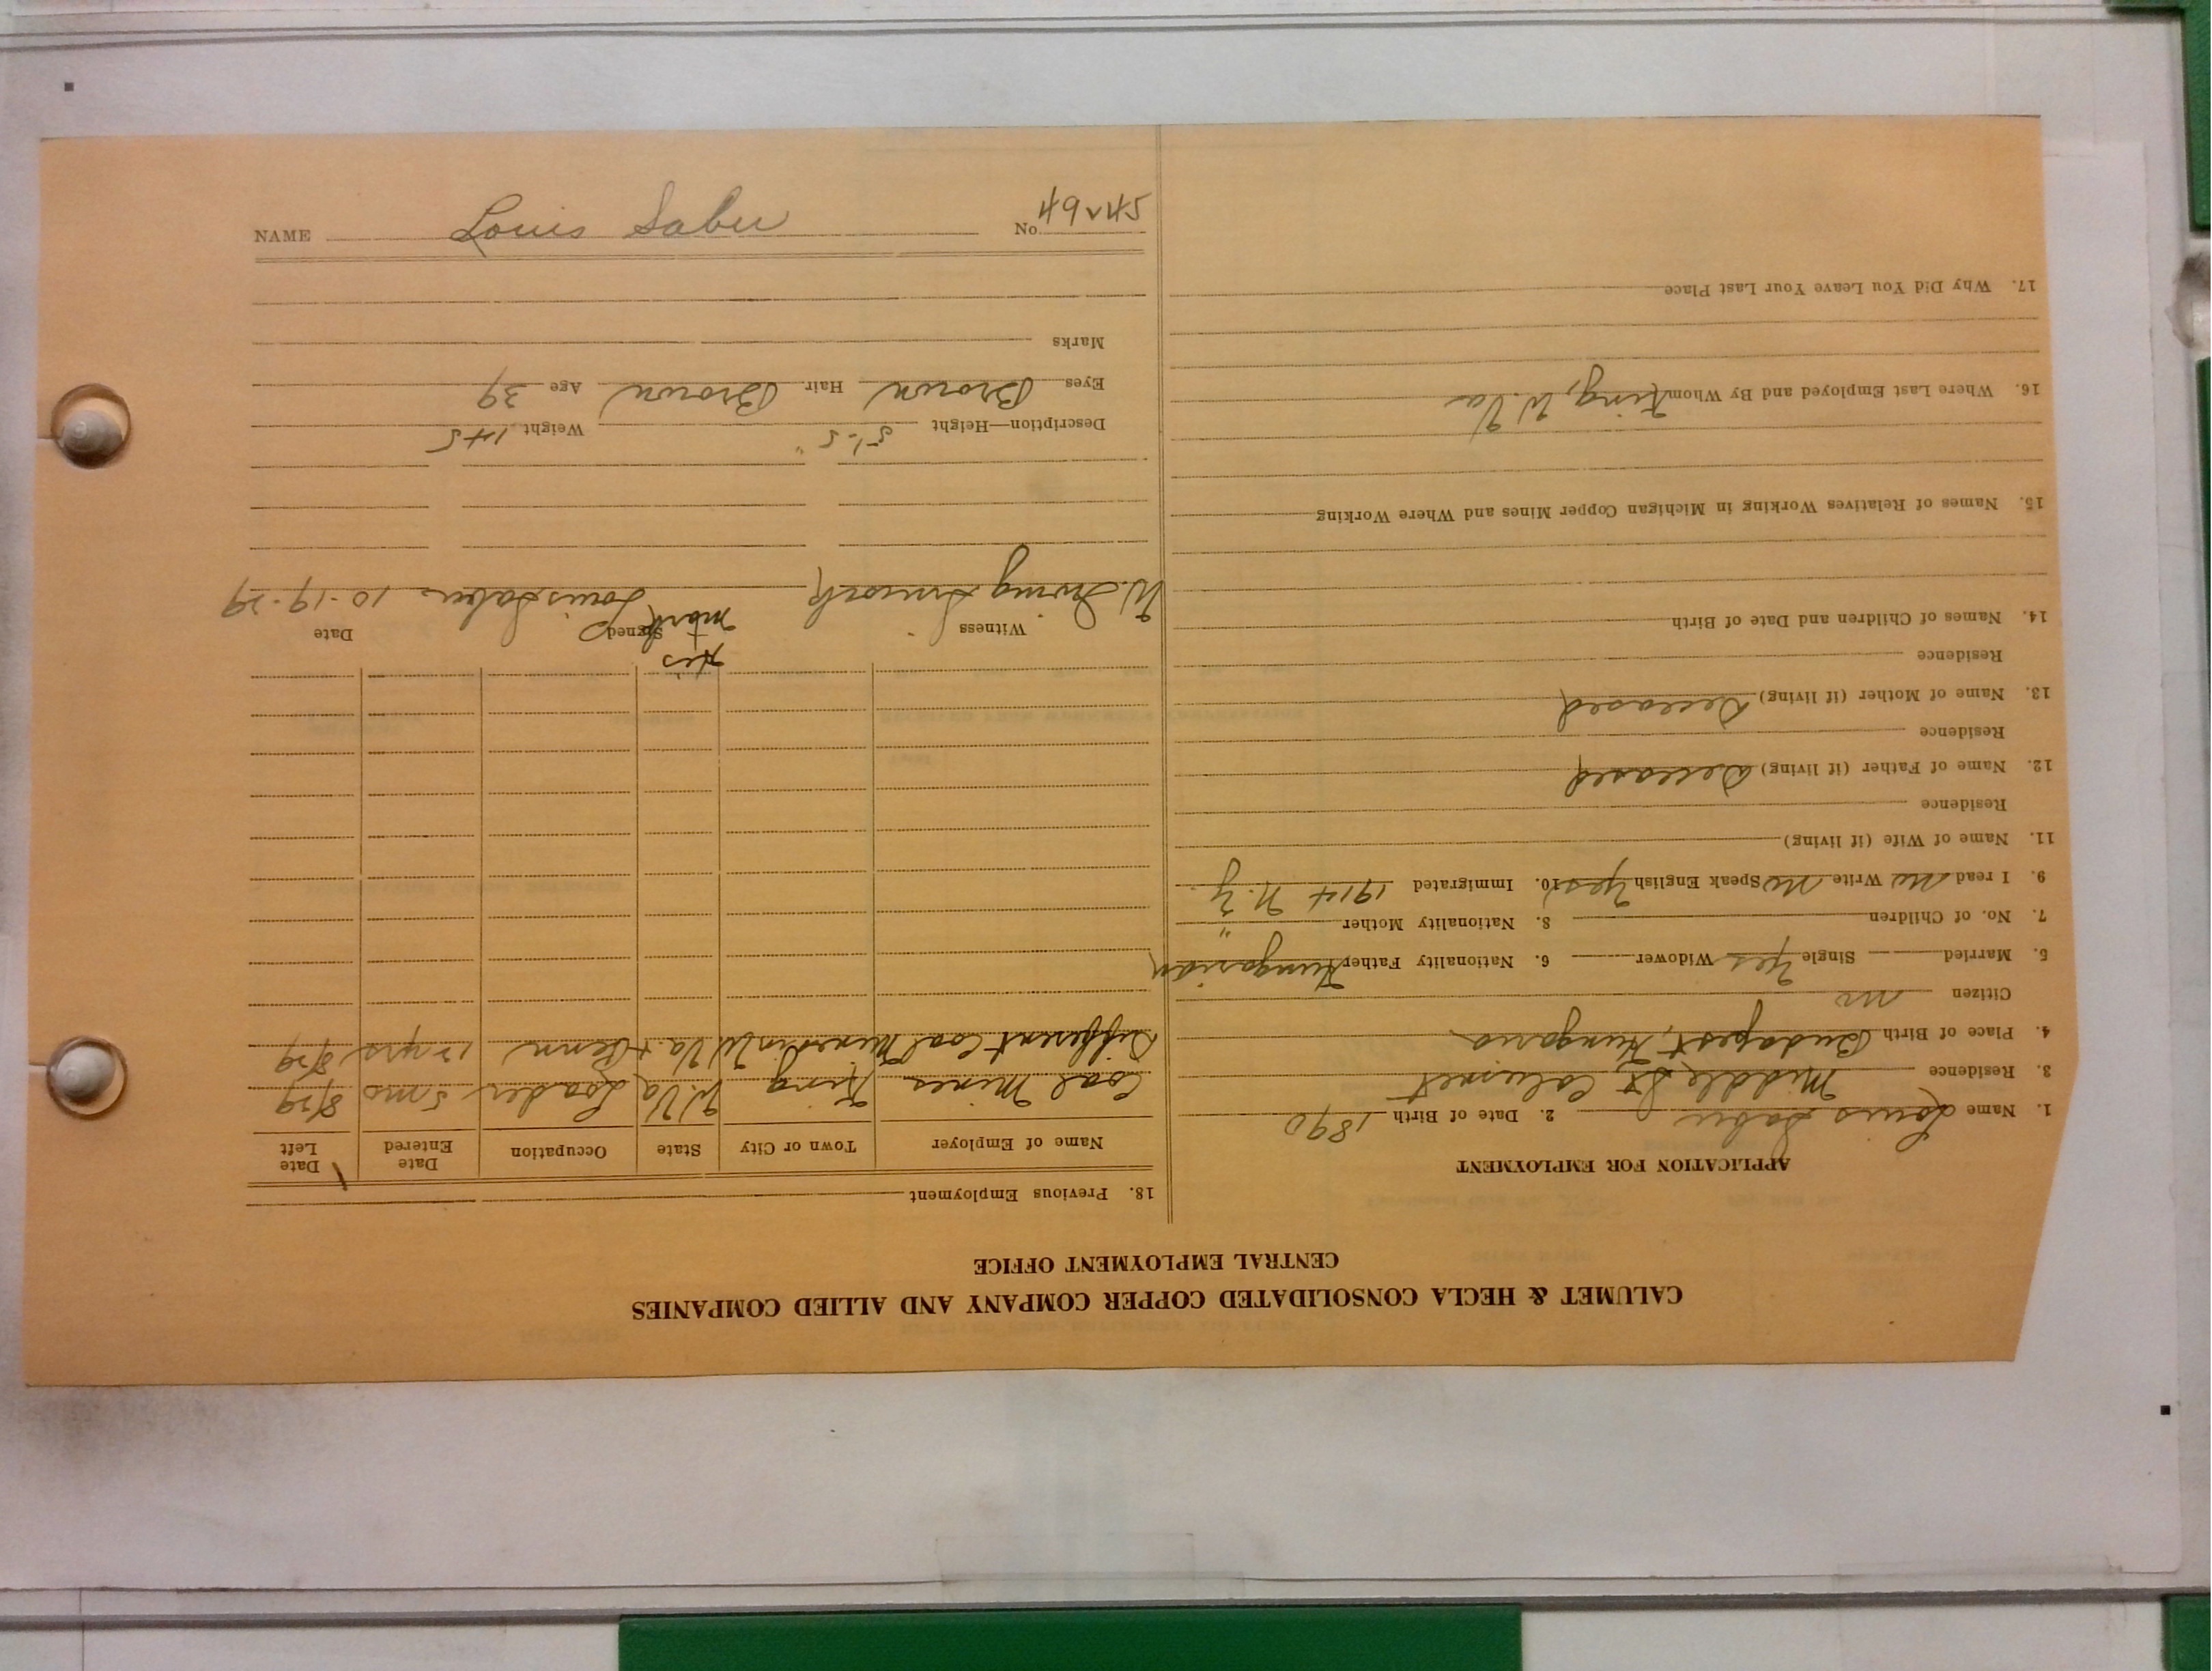 CALUMET & HECLA CONSOLIDATED COPPER COMPANY AND ALLIED COMPANIES
CENTRAL EMPLOYMENT OFFICE
APPLICATION FOR EMPLOYMENT
1. Name Louis Sabu 2. Date of Birth 1890
3. Residence Middle St Calumet
4. Place of Birth Budapest, Hungaria
Citizen no
5. Married Single Yes Widower 6. Nationality Father Hungarian
7. No. of Children 8. Nationality Mother "
9. I read no Write no Speak English Yes 10. Immigrated 1914 N.Y.
11. Name of Wife (if living)
Residence
12. Name of Father (if living) Deceased
Residence
13. Name of Mother (if living) Deceased
Residence
14. Names of Children and Date of Birth
15. Names of Relatives Working in Michigan Copper Mines and Where Working
16. Where Last Employed and By Whom King, W. Va
17. Why Did You Leave Your Last Place
18. Previous Employment
Name of Employer Town or City State Occupation Date Entered Date Left
Coal Mines King W. Va Loader 5 mo 8/29
Different Coal Mines in W Va. + Penn 12 yrs 8/29
His
Witness mark Signed Date
W. Irving Louis Sabu 10-19-29
Description—Height 5'-5" Weight 145
Eyes Brown Hair Brown Age 39
Marks
NAME Louis Sabu No. 49245